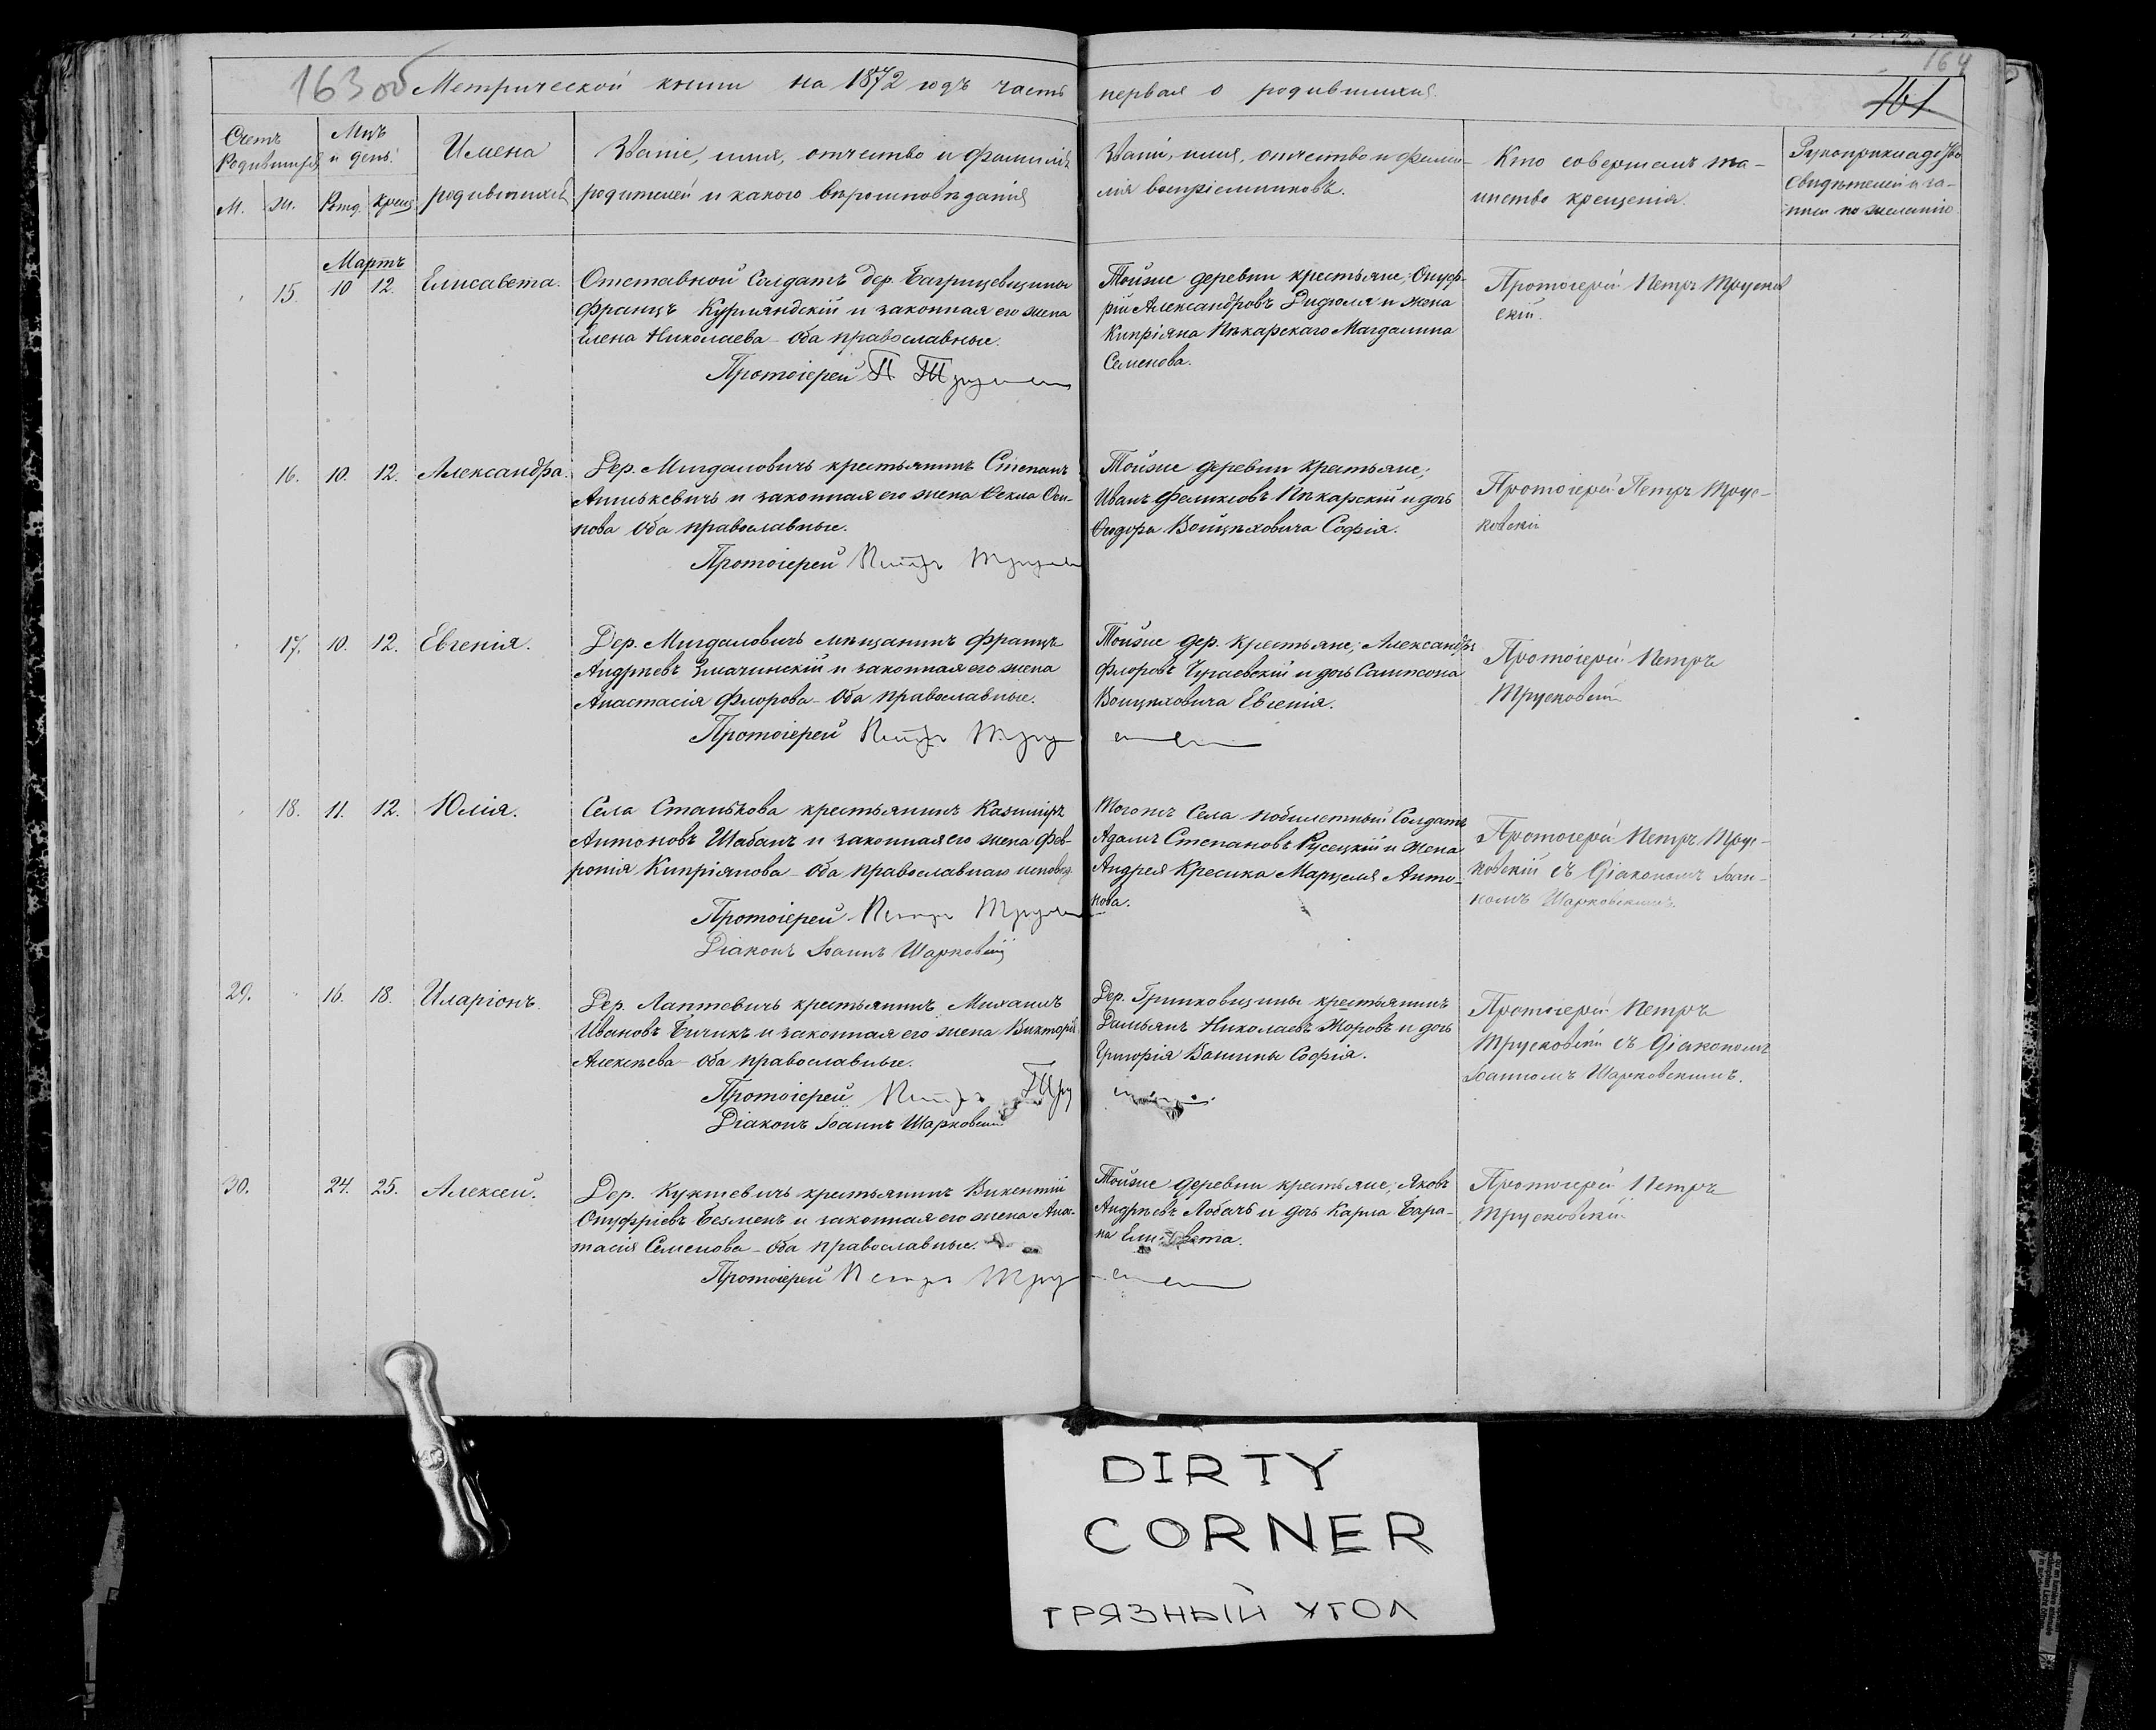 163 об Метрической книги на 1872 годъ часть первая о родившихся.
164
161
Счетъ Родившихся
Мцъ и день.
Имена родившихся
Званіе, имя, отчество и фамилія
родителей и какого вѣроисповѣданія
Званіе, имя, отчество и фами-
лія воспріемниковъ.
Кто совершалъ та-
инство крещенія.
Рукоприкладство
свидѣтелей и за-
писи по желанію
М. Ж. Рожд. Крещ
Мартъ
15. 10 12. Елисавета.
Отставной Солдатъ дер. Багрицевщины
Францъ Курляндскій и законная его жена
Елена Николаева – оба православные.
Протоіерей П
Тойже деревни крестьяне; Онуф-
рій Александровъ Дидюля и жена
Кипріяна Пѣкарскаго Магдалина
Семенова.
Протоіерей Петръ Трусков
скій.
16. 10. 12. Александра.
Дер. Мигдаловичъ крестьянинъ Степанъ
Анискевичъ и законная его жена Ѳекла Оси-
пова оба православные.
Протоіерей Петръ
Тойже деревни крестьяне;
Иванъ Феликсовъ Пѣкарскій и дочь
Ѳеодора Войцѣховича Софія.
Протоіерей Петръ Трус-
ковскій
17. 10. 12. Евгенія.
Дер. Мигдаловичъ мѣщанинъ Францъ
Андреевъ Змачинскій и законная его жена
Анастасія Флорова – Оба православные.
Протоіерей Петръ
Тойже дер. крестьяне; Александръ
Флоровъ Чураевскій и дочь Сампсона
Войцѣховича Евгенія.
Протоіерей Петръ
Трусковскій
18. 11. 12. Юлія.
Села Станькова крестьянинъ Казиміръ
Антоновъ Шабанъ и законная его жена Фев-
ронія Кипріянова – оба православнаго исповѣд.
Протоіерей Петръ
Діаконъ Іоаннъ Шарковскій
Тогожъ Села побилетный Солдатъ
Адамъ Степановъ Русецкій и жена
Андрея Кресика Марцеля Анто-
нова.
Протоіерей Петръ Трус-
ковскій съ Діакономъ Іоан-
номъ Шарковскимъ.
29. 16. 18. Иларіонъ.
Дер. Лаптевичъ крестьянинъ Михаилъ
Ивановъ Бычикъ и законная его жена Викторія
Алексѣева – оба православные.
Протоіерей Петръ
Діаконъ Іоаннъ Шарковскій
Дер. Гриньковщины крестьянинъ
Дамьянъ Николаевъ Жоровъ и дочь
Григорія Ванины Софія.
Протоіерей Петръ
Трусковскій съ Діакономъ
Іоанномъ Шарковскимъ.
30. 24. 25. Алексей.
Дер. Куктевичъ крестьянинъ Викентій
Онуфріевъ Безменъ и законная его жена Анас-
тасія Семенова – оба православные.
Протоіерей Петръ
Тойже деревни крестьяне; Яковъ
Андреевъ Лобачъ и дочь Карла Бара-
на Елисавета.
Протоіерей Петръ
Трусковскій
DIRTY
CORNER
ГРЯЗНЫЙ УГОЛ